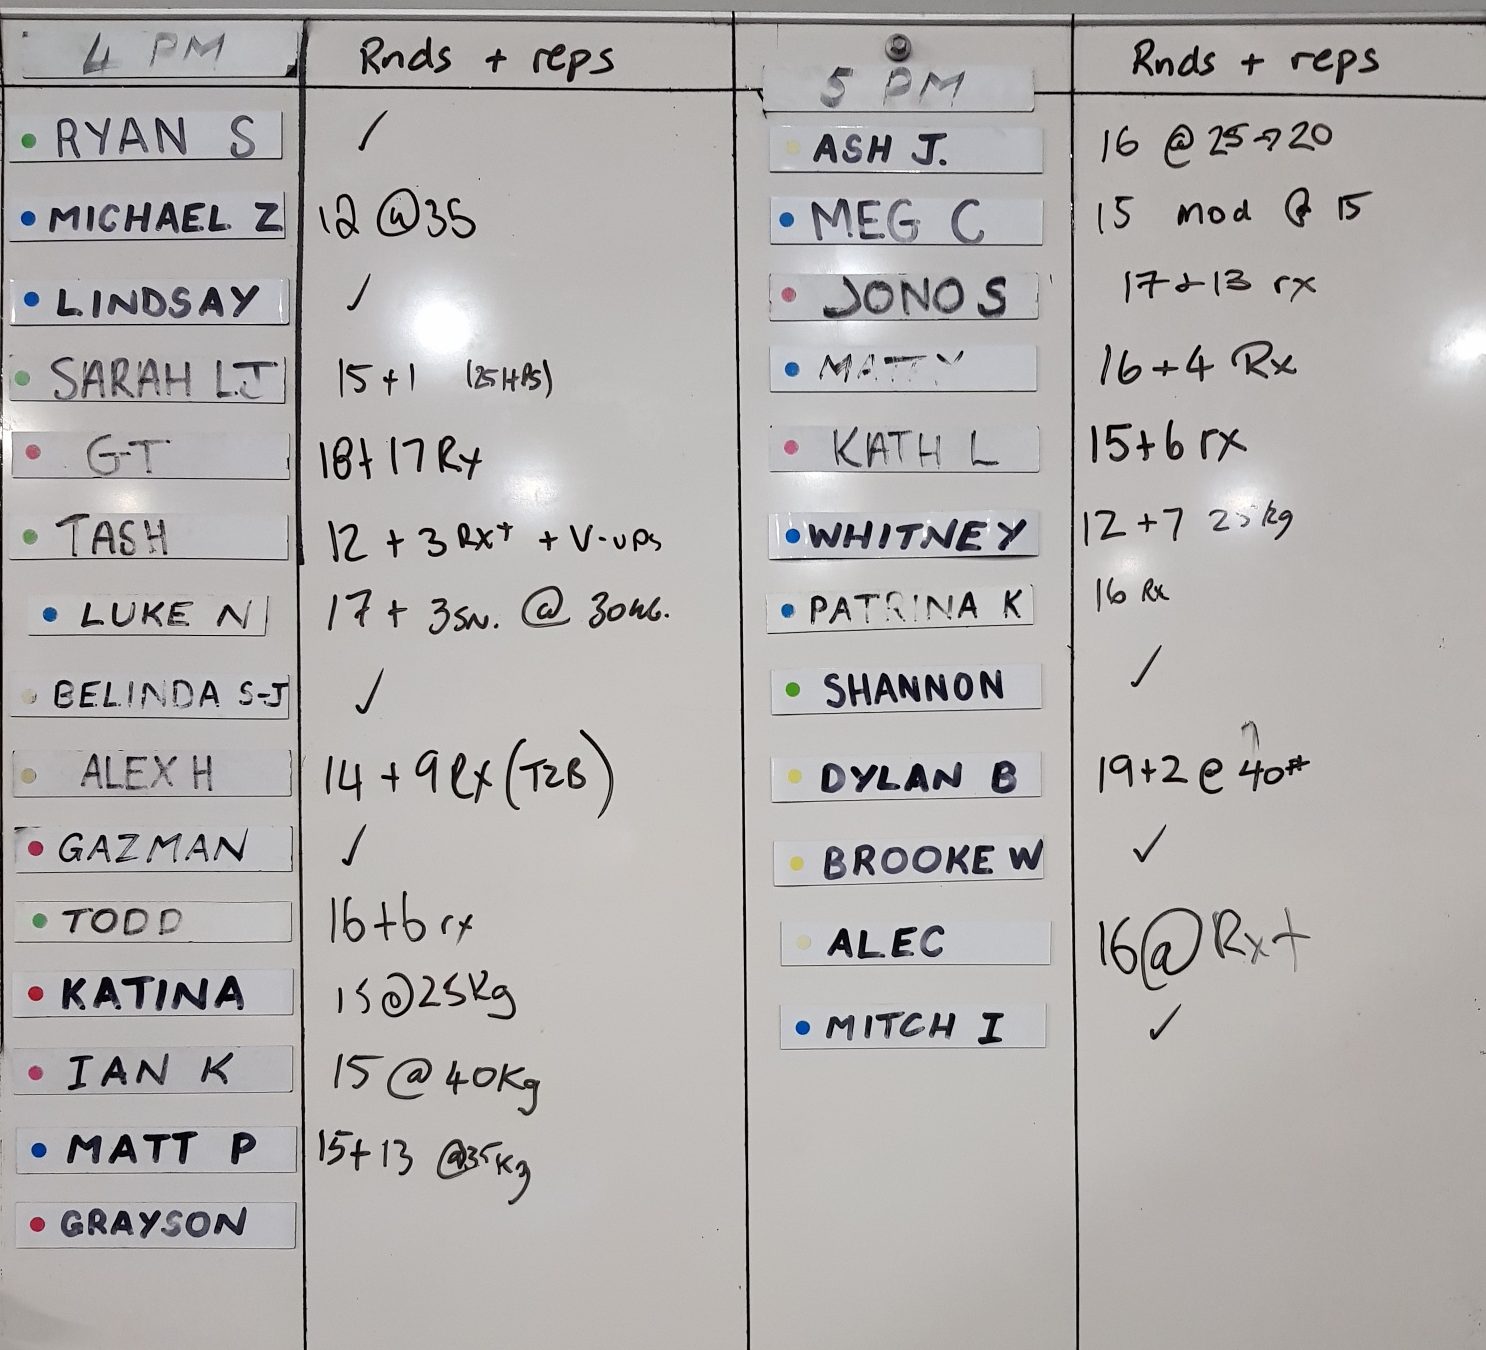 4 PM Rnds + reps
RYAN S ✓
MICHAEL Z 12 @35
LINDSAY ✓
SARAH LJ 15+1 (25HPS)
G-T 18+17 Rx
TASH 12 + 3 Rx+ + V-ups
LUKE N 17 + 3SN. @ 30KG.
BELINDA S-J ✓
ALEX H 14 + 9 Rx (T2B)
GAZMAN ✓
TODD 16+6 rx
KATINA 15@25Kg
IAN K 15 @ 40Kg
MATT P 15+13 @35Kg
GRAYSON
5 PM Rnds + reps
ASH J. 16 @ 25→20
MEG C 15 mod @ 15
JONO S 17+13 rx
MATTY 16+4 Rx
KATH L 15+6 rx
WHITNEY 12+7 25kg
PATRINA K 16 Rx
SHANNON ✓
DYLAN B 19+2 @ 40#
BROOKE W ✓
ALEC 16@Rx+
MITCH I ✓